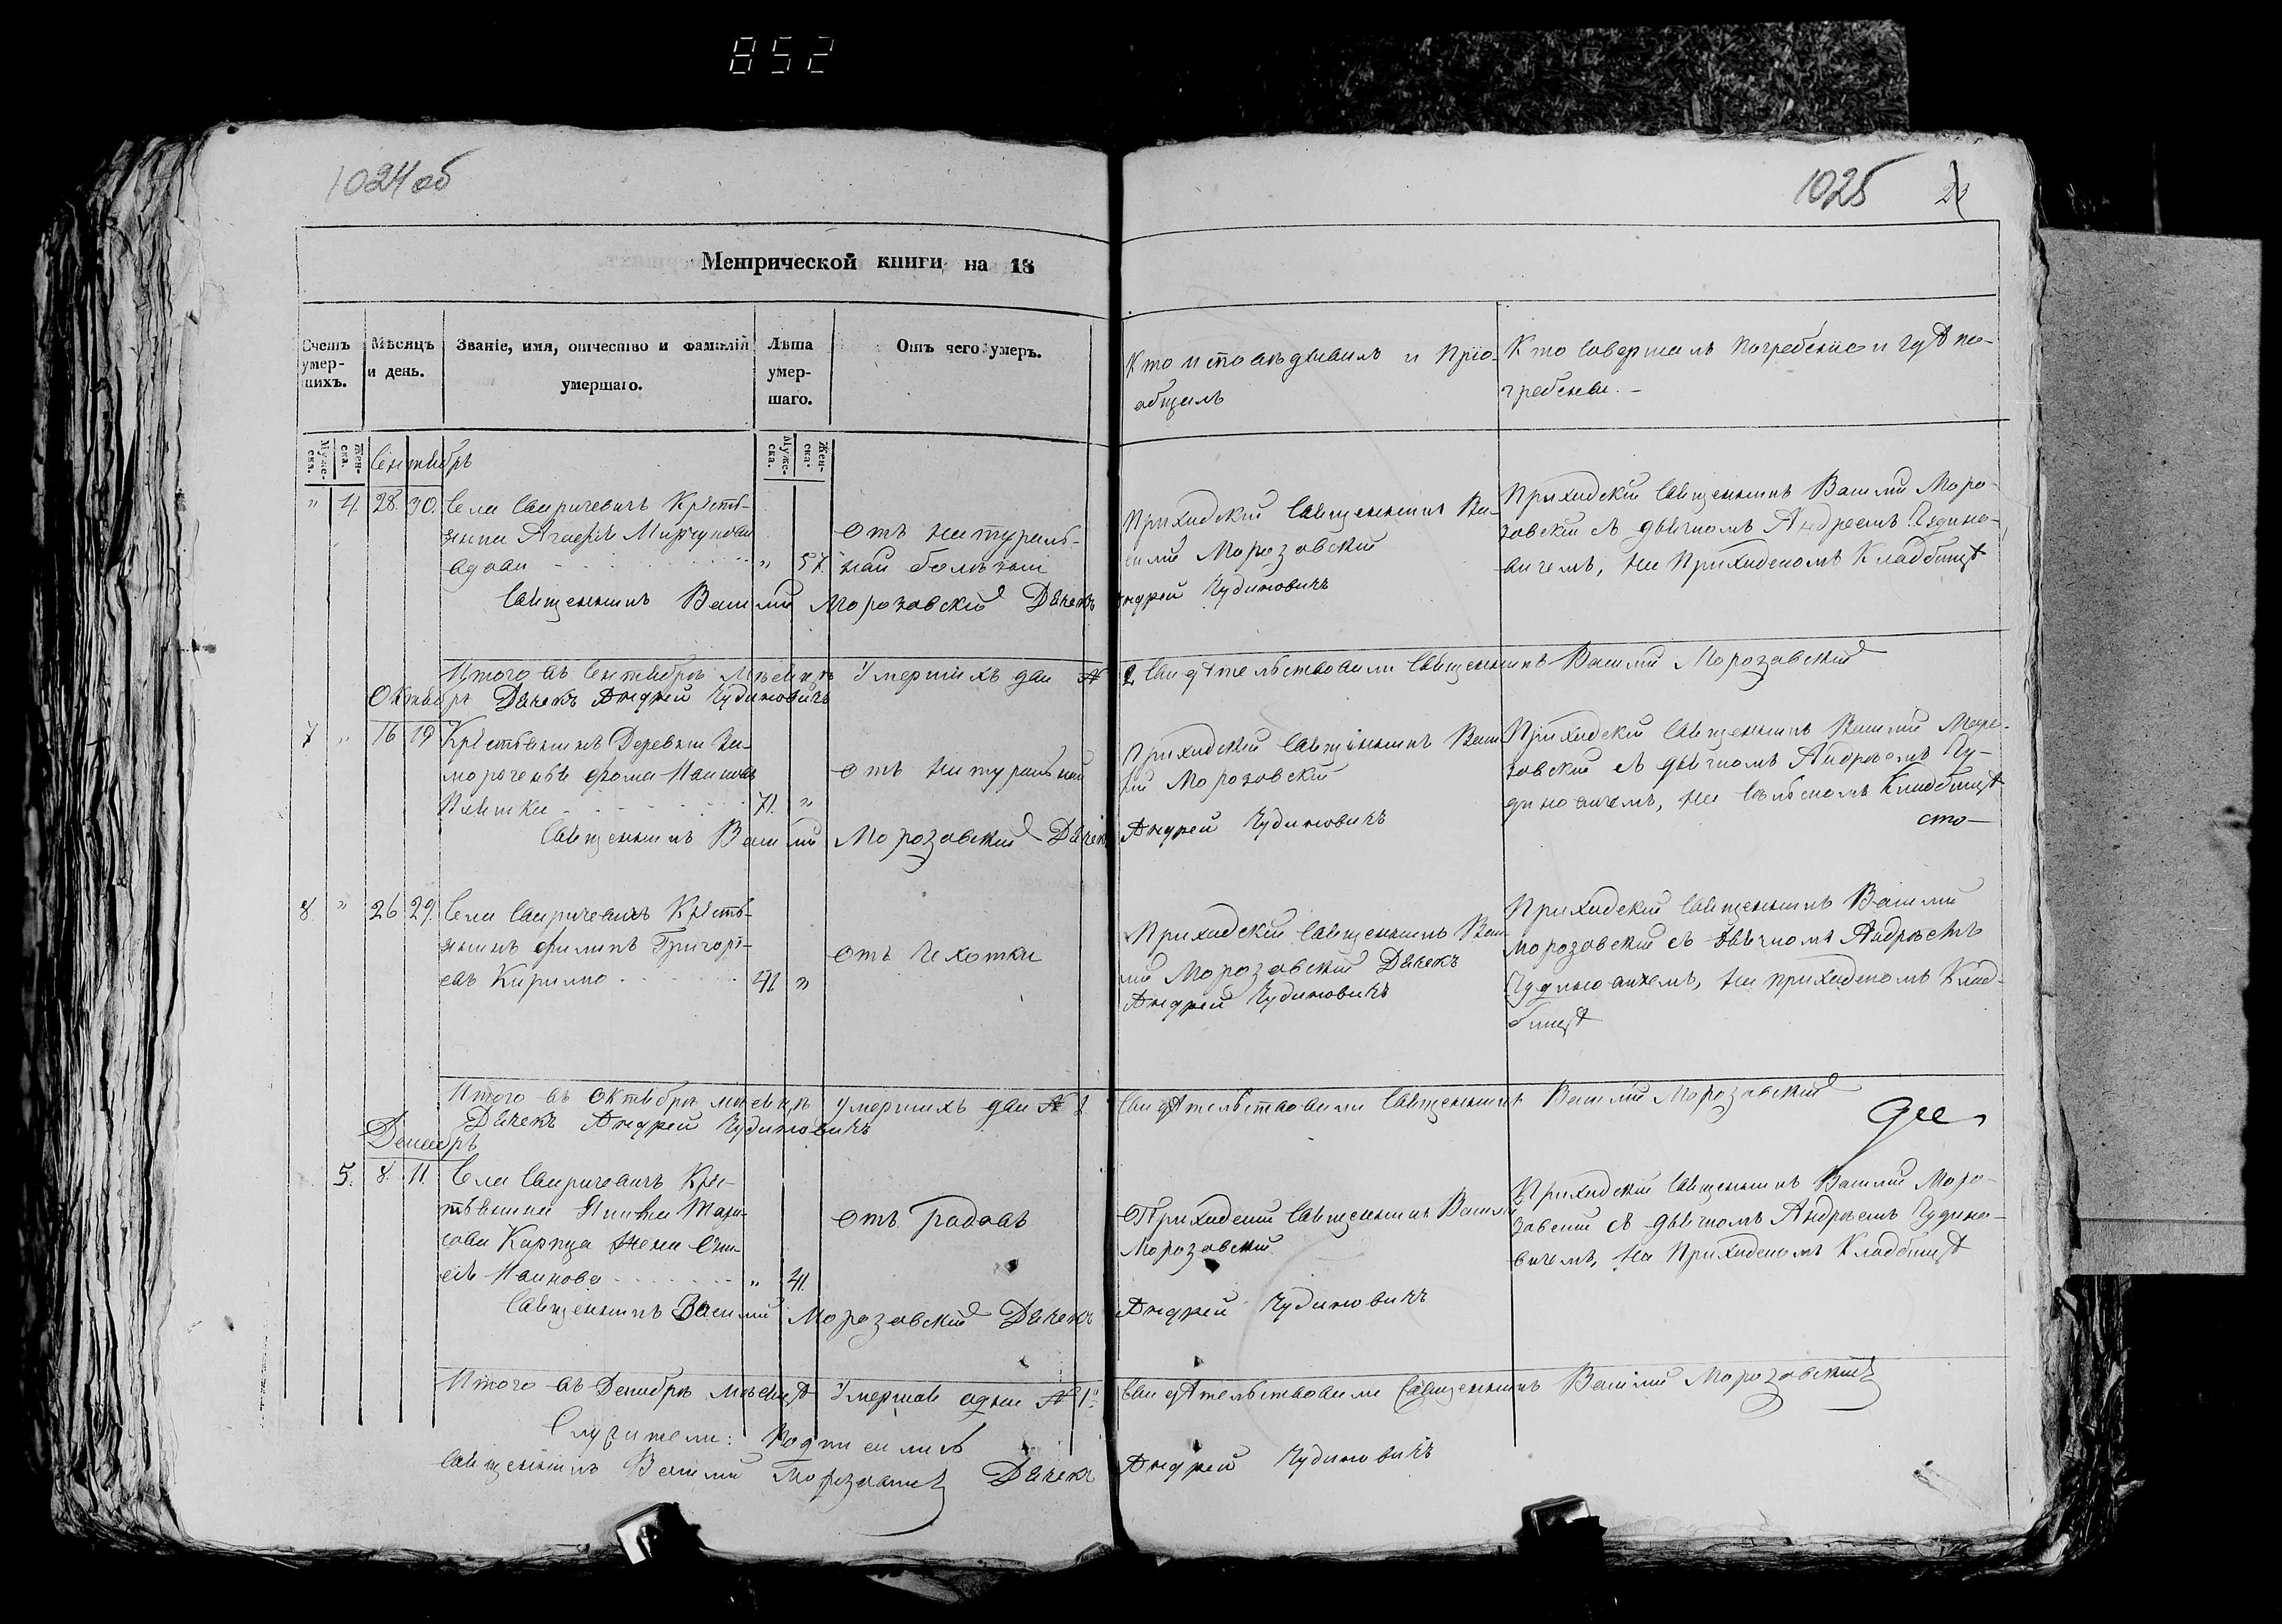 852
1024 об
1025
Метрической книги на 18
Счетъ умер-шихъ.
Мѣсяцъ и день.
Званіе, имя, отчество и фамилій умершаго.
Лѣта умер-шаго.
Отъ чего умеръ.
Кто исповѣдывалъ и Пріо-
общалъ
Кто Совершалъ Погребеніе и гдѣ по-
гребены.
Муже-ска. Жен-ска.
Муже-ска. Жен-ска.
Сентябрь
" 4. 28. 30. Села Свиричевичъ Крестья-
янка Агафія
вдова " 57.
отъ натураль-
ной болѣзни
Приходскій Священникъ Ва-
силій Морозовскій
Приходскій Священникъ Василій Моро-
зовскій съ дьячкомъ Андреемъ Чудино-
вичемъ, на Приходскомъ Кладбищѣ
Священникъ Василій Морозовскій Дьячекъ Андрей Чудиновичъ
Итого въ Сентябрѣ мѣсяцѣ Умершихъ два № 2 Свидѣтельствовали Священникъ Василій Морозовскій
Октябрь Дьячекъ Андрей Чудиновичъ
7 " 16 19 Крестьянинъ Деревни За-
мороченья Фома Ивановъ
71. "
отъ натуральной
Приходскій Священникъ Васи-
лій Морозовскій
Приходскій Священникъ Василій Моро-
зовскій съ дьячкомъ Андреемъ Чу-
диновичемъ, на Сельскомъ Кладбищѣ
Священникъ Василій Морозовскій Дьячекъ Андрей Чудиновичъ
8. " 26 29. Села Свиричевичъ Кресть-
янинъ Филипъ Григорі-
евъ Кирилко 41. "
отъ Чехотки
Приходскій Священникъ Васи-
лій Морозовскій Дьячекъ
Андрей Чудиновичъ
Приходскій Священникъ Василій
Морозовскій съ дьячкомъ Андреемъ
Чудиновичемъ, на приходскомъ Клад-
бищѣ
Итого въ Октябрѣ мѣсяцѣ умершихъ два № 2 Свидѣтельствовали Священникъ Василій Морозовскій
Дьячекъ Андрей Чудиновичъ
Декабрь
5. 8. 11. Села Свиричевичъ Крес-
тьянина
Карпца жена
Иванова " 41.
отъ Родовъ
Приходскій Священникъ Василій
Морозовскій
Приходскій Священникъ Василій Моро-
зовскій съ дьячкомъ Андреемъ Чудино-
вичемъ, на Приходскомъ Кладбищѣ
Священникъ Василій Морозовскій Дьячекъ Андрей Чудиновичъ
Итого въ Декабрѣ мѣсяцѣ Умершая одна № 1 Свидѣтельствовали Священникъ Василій Морозовскій
Служители: Подписались
Священникъ Василій Морозовскій Дьячекъ Андрей Чудиновичъ